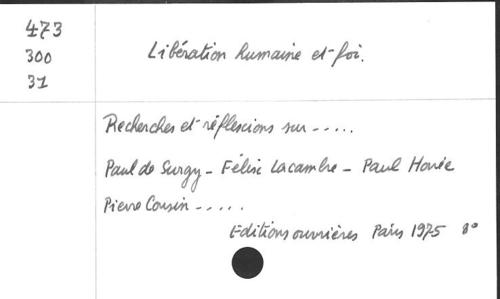 473
300
31
Libération humaine et foi.
Recherches et réflexions sur -----
Paul de Surgy - Félix Lacambre - Paul Houée
Pierre Cousin -----
Editions ouvrières Paris 1975 8°